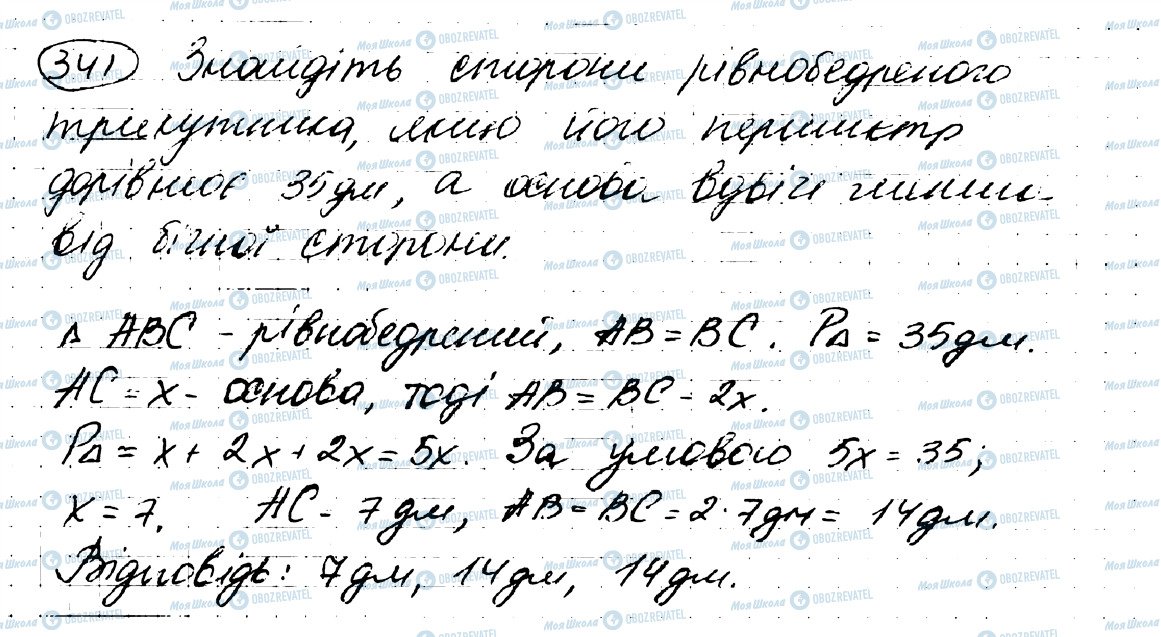 341 Знайдіть сторони рівнобедреного
трикутника, якщо його периметр
дорівнює 35 дм, а основа вдвічі менша
від бічної сторони.
Δ ABC - рівнобедрений, AB = BC. PΔ = 35 дм.
AC = x - основа, тоді AB = BC - 2x.
PΔ = x + 2x + 2x = 5x. За умовою 5x = 35;
x = 7. AC - 7 дм, AB = BC = 2 · 7 дм = 14 дм.
Відповідь: 7 дм, 14 дм, 14 дм.
Моя Школа OBOZREVATEL